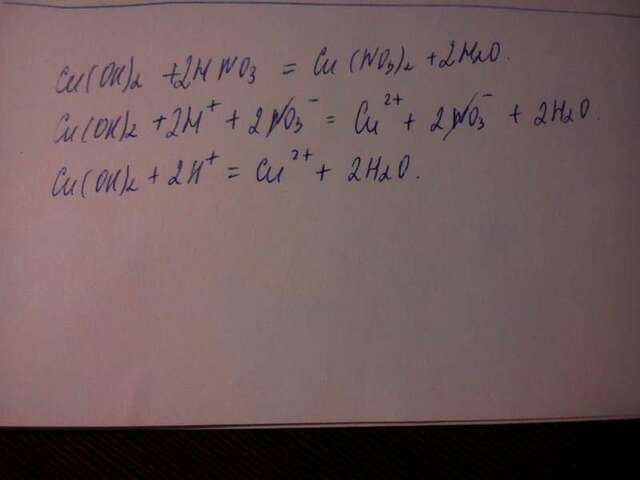 Cu(OH)₂ + 2HNO₃ = Cu(NO₃)₂ + 2H₂O.
Cu(OH)₂ + 2H⁺ + 2NO₃⁻ = Cu²⁺ + 2NO₃⁻ + 2H₂O.
Cu(OH)₂ + 2H⁺ = Cu²⁺ + 2H₂O.